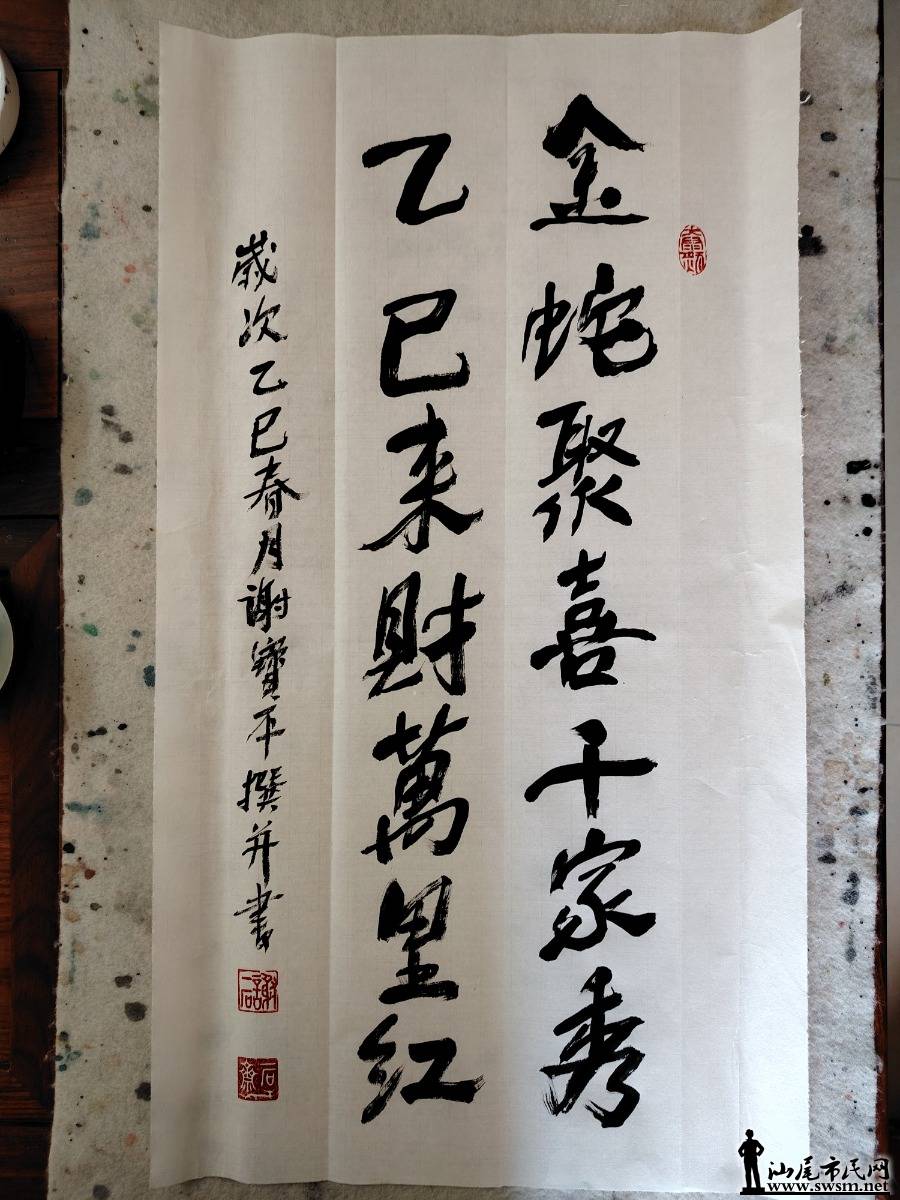 金蛇聚喜千家秀
乙巳来財萬里红
歲次乙巳春月謝寶平撰并書
汕尾市民网
www.swsm.net